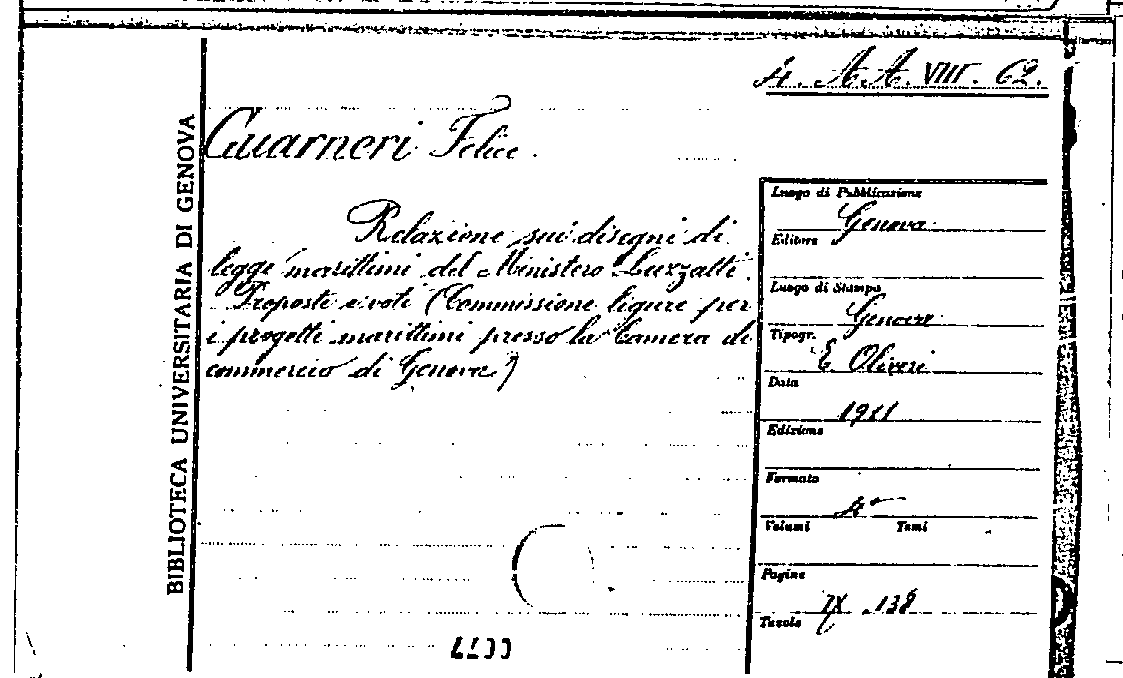 4. A A. VIII. 62.
BIBLIOTECA UNIVERSITARIA DI GENOVA
Guarneri Felice.
Relazione sui disegni di
legge marittimi del Ministero Luzzatti.
Proposte e voti (Commissione ligure per
i progetti marittimi presso la Camera di
commercio di Genova)
Luogo di Pubblicazione
Genova
Editore
Luogo di Stampa
Genova
Tipogr.
E. Oliveri
Data
1911
Edizione
Formato
4°
Volumi Tomi
Pagine
IX. 138
Tavole